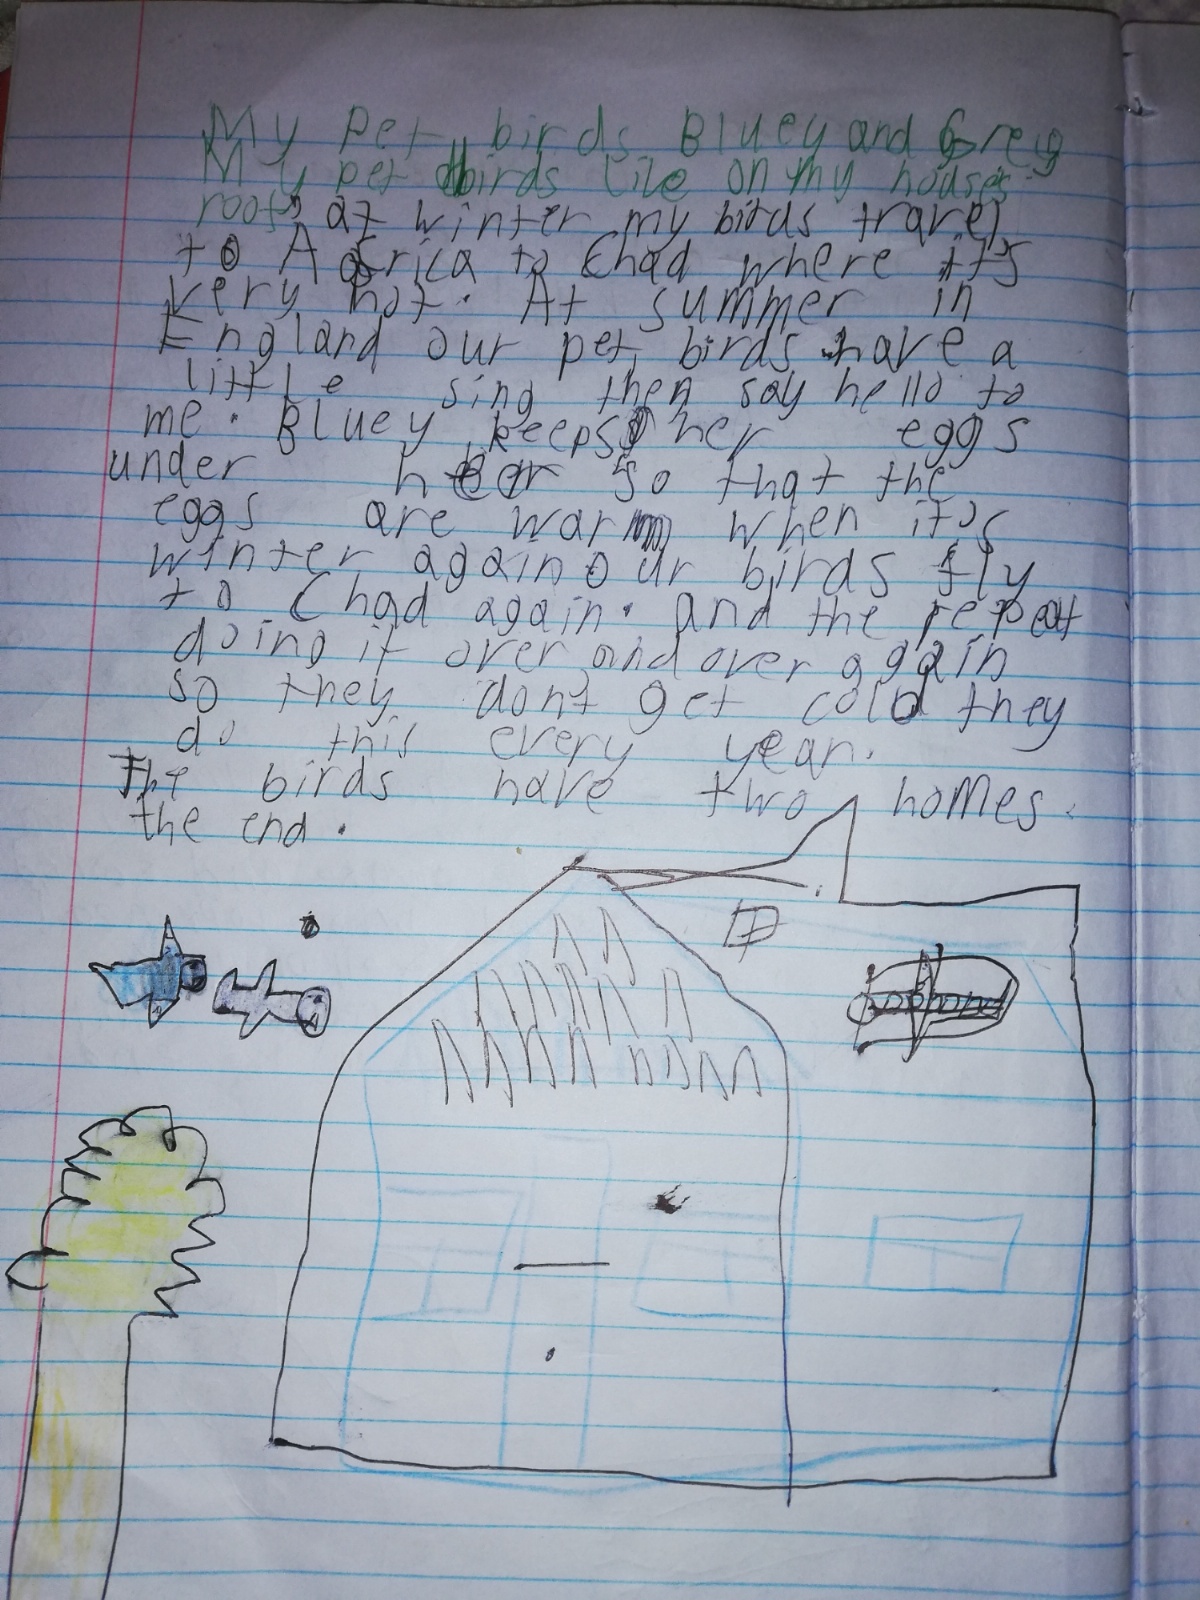 My Pet birds Bluey and Greig
My pet birds live on my houses
roof, at winter my birds travel
to Africa to Chad where it's
very hot. At summer in
England our pet birds have a
little sing then say hello to
me. Bluey keeps her eggs
under her so that the
eggs are warm when it's
winter again our birds fly
to Chad again. and the repeat
doing it over and over again
so they dont get cold they
do this every year.
The birds have two homes.
the end.